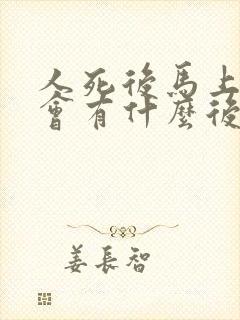 人死後馬上
會有什麼後
姜長智